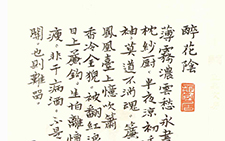 醉花陰
薄霧濃雲愁永晝
枕紗厨,半夜涼初
袖,莫道不消魂,簾
鳳凰臺上憶吹簫
香冷金猊,被翻紅浪
日上簾鈎,生怕離懷
瘦,非干病酒,不是
關,也則難留